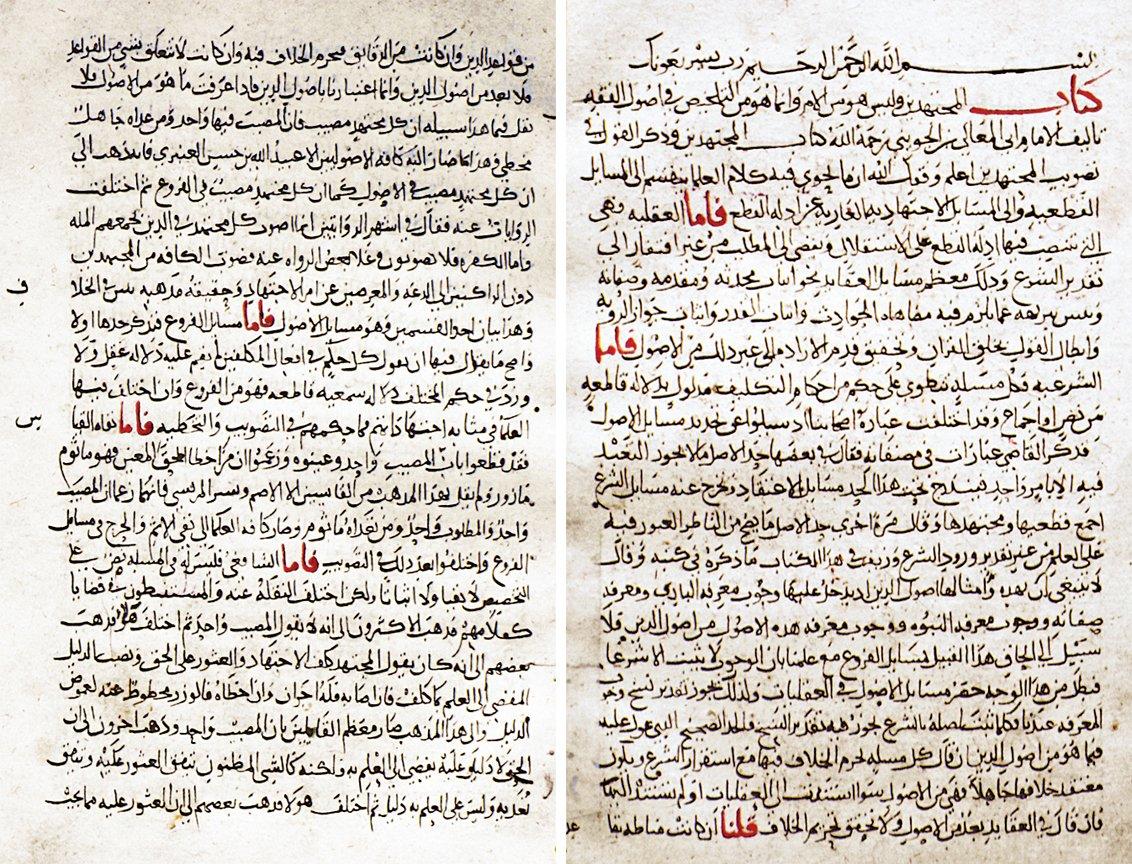 بسم الله الرحمن الرحيم رب يسر بعونك
كتاب المجتهدين وليس هو من الام وانما هو من التلخيص في اصول الفقه
تاليف الامام ابي المعالي الجويني رحمة الله كتاب المجتهدين وذكر القول في
تصويب المجتهدين اعلم وفقك الله ان ما تحوي فيه كلام العلما ينقسم الى المسايل
القطعية والى المسايل الاجتهادية العارية عن ادلة القطع فاما العقلية فهي
التي تنتصب فيها ادلة القطع على الاستقلال وتفضي الى المطلب من غير افتقار الى
تقدير الشرع وذلك معظم مسايل العقايد نحو اثبات محدثه وقدمه وصفاته
وتبيين تنزيهه عما يلزم فيه مضاهاة الحوادث واثبات القدر واثبات جواز الروية
وابطال القول بخلق القران وتحقيق قدم الارادة الى غير ذلك من الاصول فاما
الشرعية فكل مسلة تنطوي على حكم من احكام التكليف مدلول بدلالة قاطعة
من نص او اجماع وقد اختلفت عبارة اصحابنا اذ سيلوا عن تحديد مسايل الاصول
فذكر القاضي عبارات في مصنفاته فقال في بعضها حد الاصل ما لا يجوز التعبد
فيه الا بامر واحد فيندرج تحت هذا الحد مسايل الاعتقاد وتخرج عنه مسايل الشرع
اجمع قطعيها ومجتهدها وقال مرة اخرى حد الاصل ما يصح من الناظر العثور فيه
على العلم من غير تقدير ورود الشرع وزيف في هذا الكتاب ما ذكره في كتبه وقال
لا ينبغي ان بهذه وامثالها اصول الدين لا يدخل عليها وجوب معرفة الباري ومعرفة
صفاته ووجوب معرفة النبوة ووجوب معرفة هذه الاصول من اصول الدين فلا
سبيل الى الحاق هذا القبيل بمسايل الفروع مع علمنا بان الوجوب لا يثبت الا شرعا
فبطل من هذا الوجه حصر مسايل الاصول في العقليات وكذلك يجوز تقدير نسخ وجوب
المعرفة عندنا فكلما تثبت تفصيله بالشرع يجوز فيه تقدير النسخ فالحد الصحيح الذي يعول عليه
فيما هو من اصول الدين ان قال كل مسلة يحرم الخلاف فيها مع استقرار الشرع ويكون
معتقد خلافها جاهلا فهي من الاصول سوا استندت الى العقليات او لم يستند اليها
فان قال في العقايد يعد من الاصول ولا يتحقق تحريم الخلاف قلنا ان كانت مناطة بقا
من قواعد الدين وان كانت من الدقايق فيحرم الخلاف فيه وان كانت لا تتعلق بشي من القواعد
فلا يعد من اصول الدين وانما اعتبارنا باصول الدين فاذا عرفت ما هو من الاصول فلا
تقل فيما هذا سبيله ان كل مجتهد مصيب فان المصيب فيها واحد ومن عداه جاهل
مخطي وهذا ما صار اليه كافة الاصوليين الا عبيد الله بن حسن العنبري فانه ذهب الى
ان كل مجتهد مصيب في الاصول كما ان كل مجتهد مصيب في الفروع ثم اختلفت
الروايات عنه فقال في اشهر الروايتين انما اصوب كل مجتهد في الدين تجمعهم الملة
واما الكفرة فلا يصوبون وغلا بعض الرواة عنه فصوب الكافة من المجتهدين
دون الراكنين الى الدعة والمعرضين عن امر الاجتهاد وحقيقة مذهبه تبين في الخلا
وهذا بيان احد القسمين وهو مسايل الاصول فاما مسايل الفروع فنذكر حدها اولا
واصح ما يقال فيها ان يقول كل حكم في افعال المكلفين لم تقم عليه دلالة عقل ولا
ورد في حكم المختلف فيه دلالة سمعية قاطعة فهو من الفروع وان اختلف فيها
العلما في مثابة اجتهاداتهم فما حكمهم في التصويب والتخطية فاما نفاة القيا
فقد قطعوا بان المصيب واحد وعينوه وزعموا ان من اخطا الحق المعين فهو ماثوم
مازور ولم يقل بهذا المذهب من القايسين الا الاصم وبشر المريسي فانهما زعما ان المصيب
واحد والمطلوب واحد ومن تعداه ماثوم وصار كافة العلما الى نفي الاثم والحرج في مسايل
الفروع واختلفوا بعد ذلك في التصويب فاما الشافعي فليس له في المسلة نص على
التخصيص لا نفيا ولا اثباتا ولكن اختلف النقلة عنه والمستنبطون في قضايا
كلامهم فذهب الاكثرون الى انه لا يقول المصيب واحد ثم اختلف هولا فذهب
بعضهم الى انه كان يقول المجتهد كلف الاجتهاد والعثور على الحق ونصب الدليل
المفضي الى العلم بما كلف فان اصابه فله اجران وان اخطاه فالوزر محطوط عنه لغموض
الدليل والى هذا المذهب صار معظم القايلين بان المصيب واحد وذهب اخرون الى ان
الحق لا دليل عليه يفضي الى العلم به ولكنه كالشي المطنون يتفق العثور عليه ويتفق
تعديه وليس على العلم به دليل ثم اختلف هولا فذهب بعضهم الى ان العثور عليه مما يجب